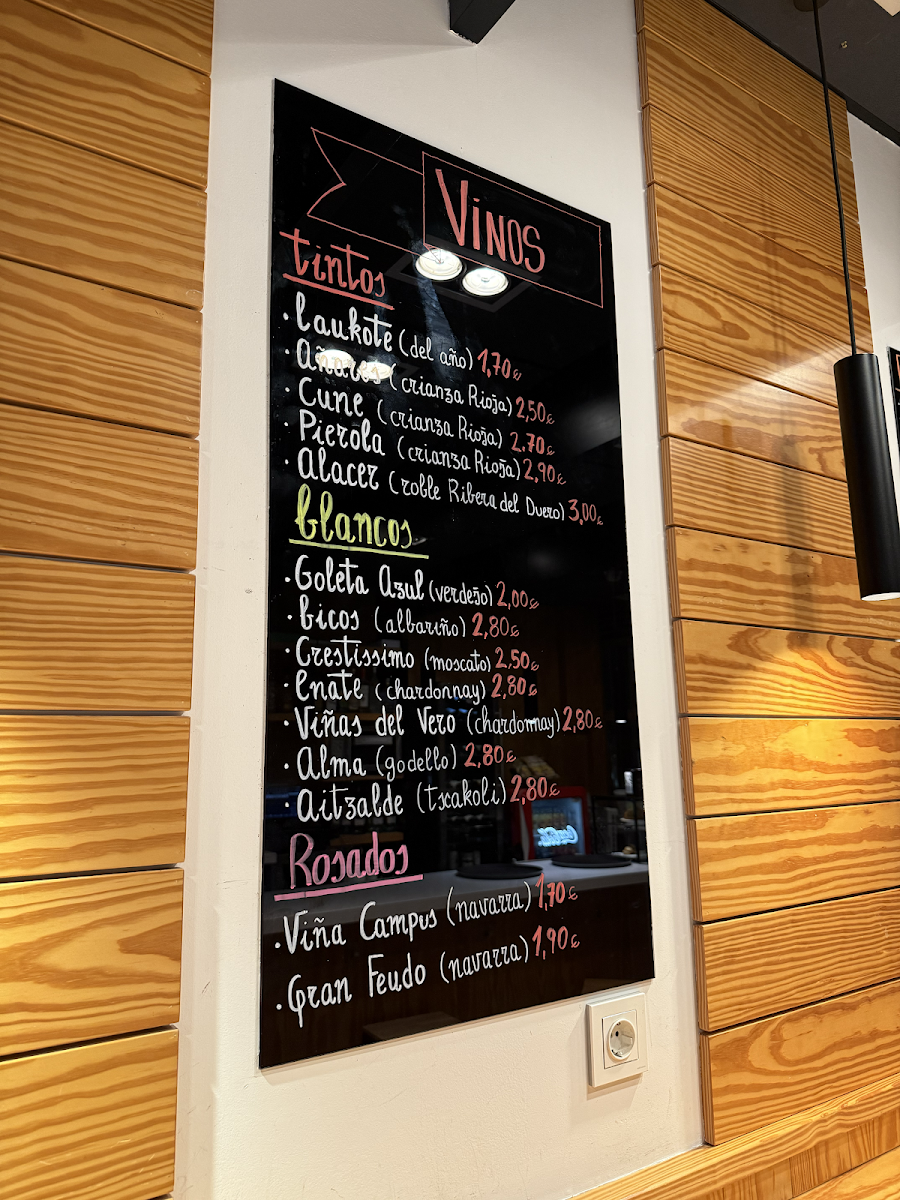 Vinos
tintos
· Laukote (del año) 1,70€
· Añares (crianza Rioja) 2,50€
· Cune (crianza Rioja) 2.70€
· Pierola (crianza Rioja) 2,90€
· Alacer (roble Ribera del Duero) 3,00€
blancos
· Goleta Azul (verdejo) 2,00€
· bicos (albariño) 2,80€
· Crestissimo (moscato) 2.50€
· Enate (chardonnay) 2,80€
· Viñas del Vero (chardonnay) 2,80€
· Alma (godello) 2,80€
· Aitzalde (txakoli) 2,80€
Rosados
· Viña Campus (navarra) 1,70€
· Gran Feudo (navarra) 1,90€